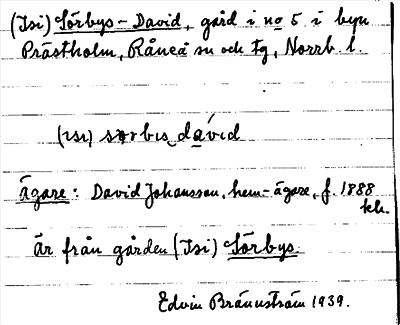 (Isi) Sörbys-David, gård i no 5 i byn
Prästholm, Råneå sn och tg, Norrb. l.
(ısı) sørbıs davıd
Ägare: David Johansson, hem-ägare, f. 1888
kh.
Är från gården (Isi) Sörbys.
Edvin Brännström 1939.